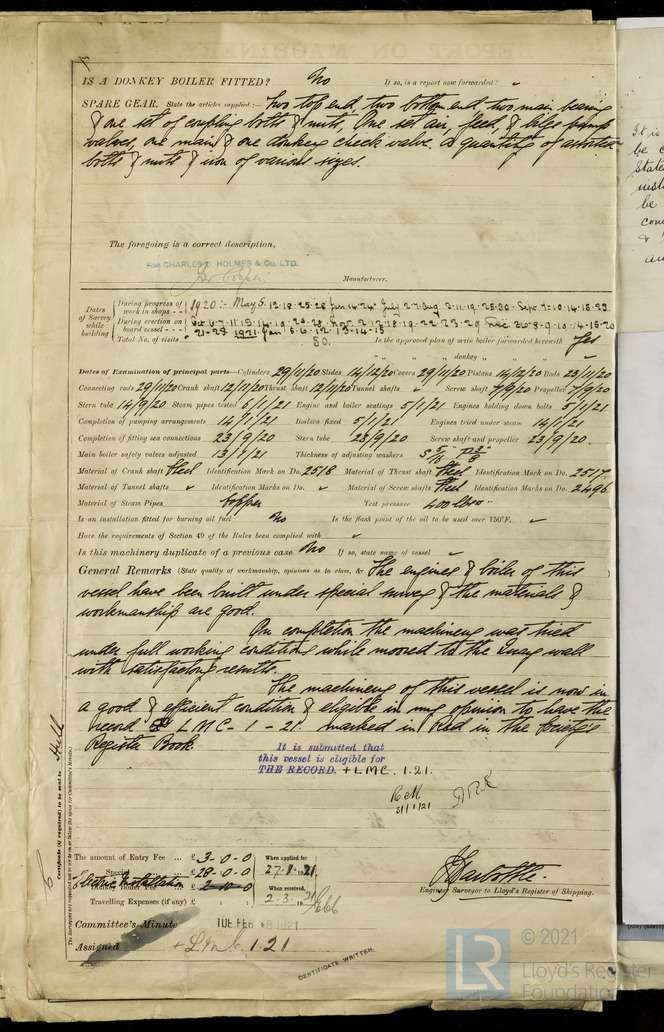 IS A DONKEY BOILER FITTED? No If so, is a report now forwarded? "
SPARE GEAR. State the articles supplied:— Two top end, two bottom end, two main bearing
& one set of coupling bolts & nuts, One set air, feed, & bilge pump
valves, one main & one donkey check valve. a quantity of assorted
bolts & nuts & iron of various sizes.
The foregoing is a correct description,
FOR CHARLES D. HOLMES & Co. LTD.
Manufacturer.
Dates of Survey while building
During progress of work in shops - - 1920:- May 5. 12. 18. 25. 28 Jun 14. 24. July 2. 7. Aug 3. 11. 19. 25. 30. Sept 7. 10. 14. 15. 23
During erection on board vessel - - - Oct 6. 7. 11. 13. 14. 19. 20. 28. Nov. 2. 12. 18. 19. 22. 23. 29 Dec 8. 9. 10. 14. 15. 20
21. 23. 1921 Jan 5. 6. 12. 13. 14. 18
Total No. of visits 50. Is the approved plan of main boiler forwarded herewith Yes
" " " donkey " " " "
Dates of Examination of principal parts—Cylinders 29/11/20 Slides 14/12/20 Covers 29/11/20 Pistons 14/12/20 Rods 29/11/20
Connecting rods 29/11/20 Crank shaft 12/11/20 Thrust shaft 12/11/20 Tunnel shafts " Screw shaft 7/9/20 Propeller 7/9/20
Stern tube 14/9/20 Steam pipes tested 6/1/21 Engine and boiler seatings 5/1/21 Engines holding down bolts 5/1/21
Completion of pumping arrangements 14/1/21 Boilers fixed 5/1/21 Engines tried under steam 14/1/21
Completion of fitting sea connections 23/9/20 Stern tube 23/9/20 Screw shaft and propeller 23/9/20.
Main boiler safety valves adjusted 13/1/21 Thickness of adjusting washers
Material of Crank shaft Steel Identification Mark on Do. 2518 Material of Thrust shaft Steel Identification Mark on Do. 2517
Material of Tunnel shafts " Identification Marks on Do. " Material of Screw shafts Steel Identification Marks on Do. 2496
Material of Steam Pipes Copper Test pressure 400 lbs
Is an installation fitted for burning oil fuel No Is the flash point of the oil to be used over 150°F. "
Have the requirements of Section 49 of the Rules been complied with "
Is this machinery duplicate of a previous case No If so, state name of vessel "
General Remarks (State quality of workmanship, opinions as to class, &c. The engines & boiler of this
vessel have been built under special survey & the materials &
workmanship are good.
On completion the machinery was tried
under full working conditions while moored to the Quay wall
with satisfactory results.
The machinery of this vessel is now in
a good & efficient condition & eligible in my opinion to have the
record + LMC - 1 - 21. marked in Red in the Society's
Register Book.
It is submitted that
this vessel is eligible for
THE RECORD. + LMC. 1. 21.
31/1/21
Certificate (if required) to be sent to Hull
The amount of Entry Fee ... £ 3-0-0
Special ... £ 28-0-0
Electric Installation £ 2-10-0
Travelling Expenses (if any) £ : :
When applied for
27.1.1921.
When received,
2-3-1921
Engineer Surveyor to Lloyd's Register of Shipping.
Committee's Minute TUE. FEB 8 1921
Assigned + L.M.C. 1.21
CERTIFICATE WRITTEN.
It is
be
State
be
LR © 2021
Lloyd's Register
Foundation